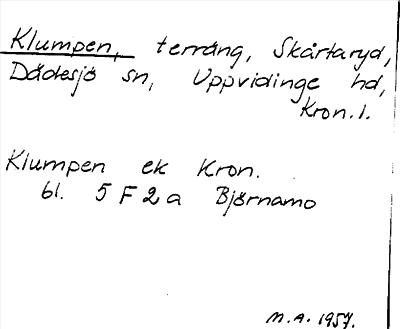 Klumpen, terräng, Skårtaryd,
Dädesjö sn, Uppvidinge hd,
Kron. l.
Klumpen ek Kron.
bl. 5 F 2 a Björnamo
M.A. 1957.